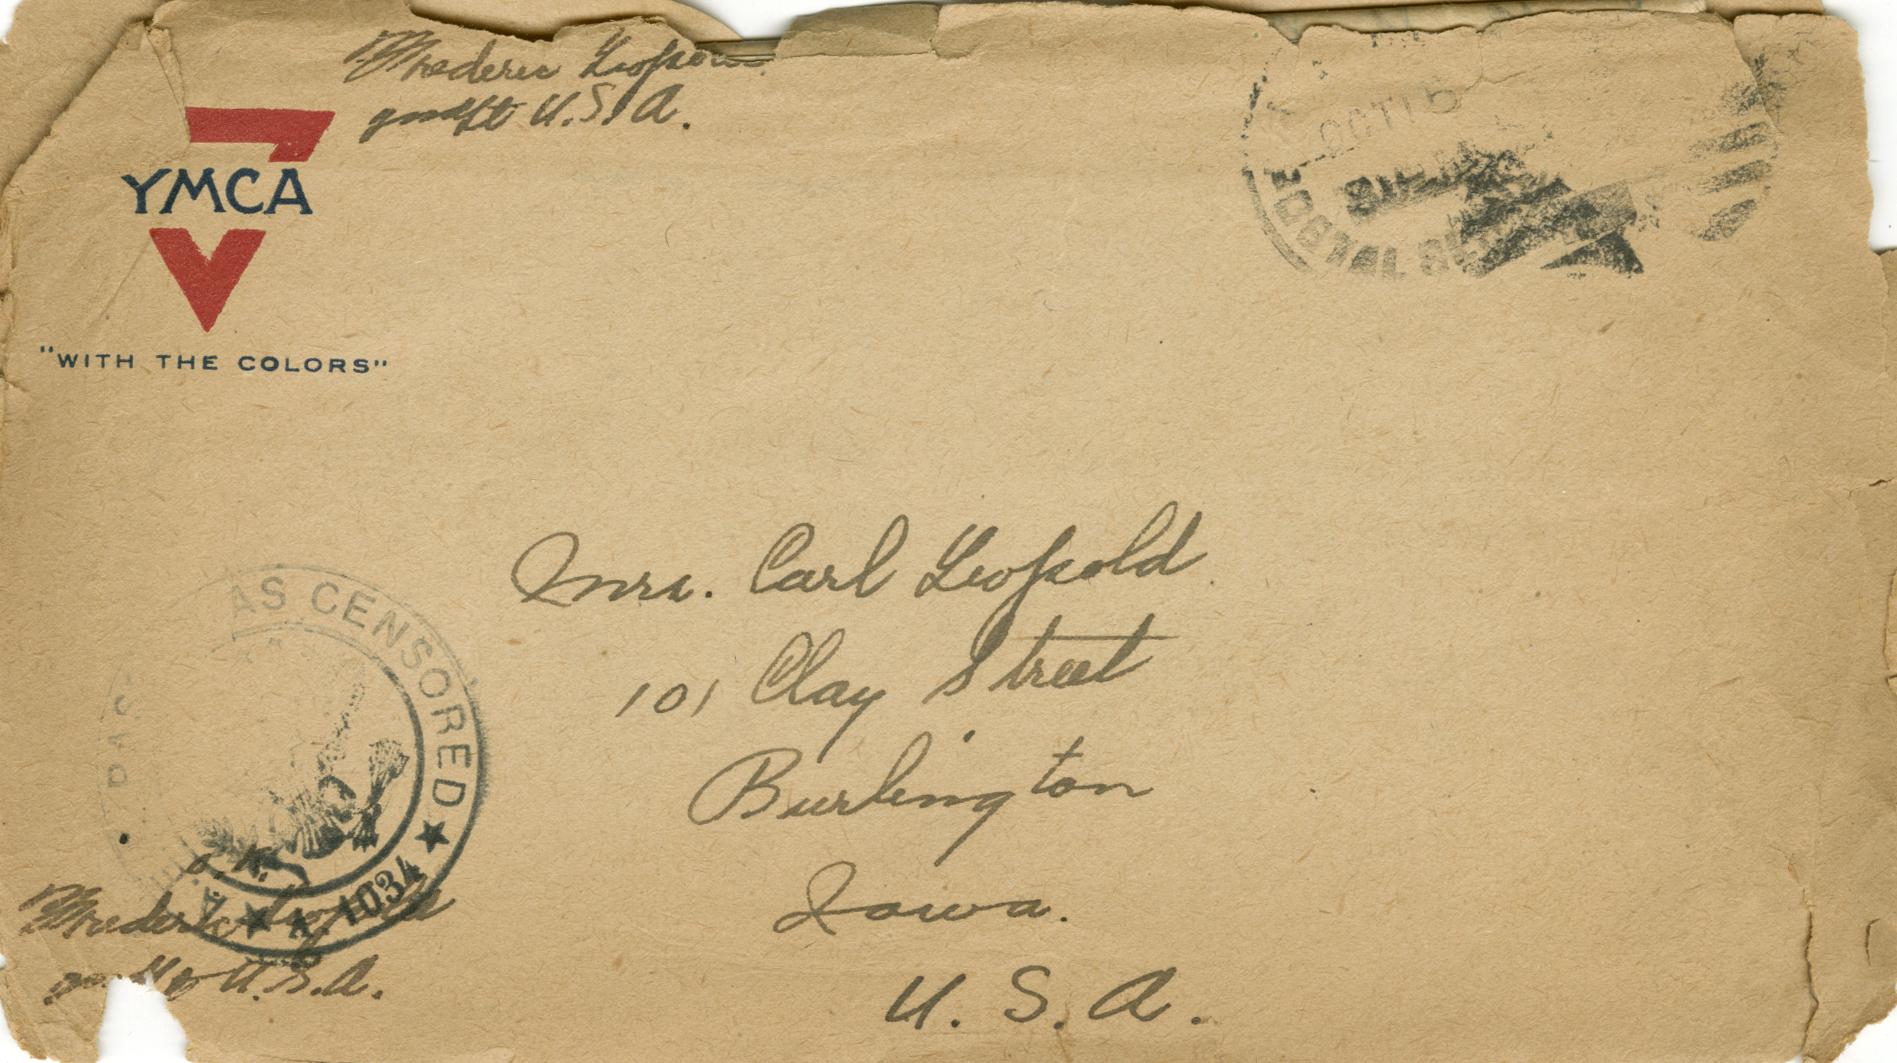 Frederic Leopold
2nd Lt U.S.A.
YMCA
"WITH THE COLORS"
OCT 16
POSTAL
Mrs. Carl Leopold
101 Clay Street
Burlington
Iowa.
U. S. A.
PAS AS CENSORED
A 1034
O.K.
Frederic Leopold
2nd Lt U.S.A.